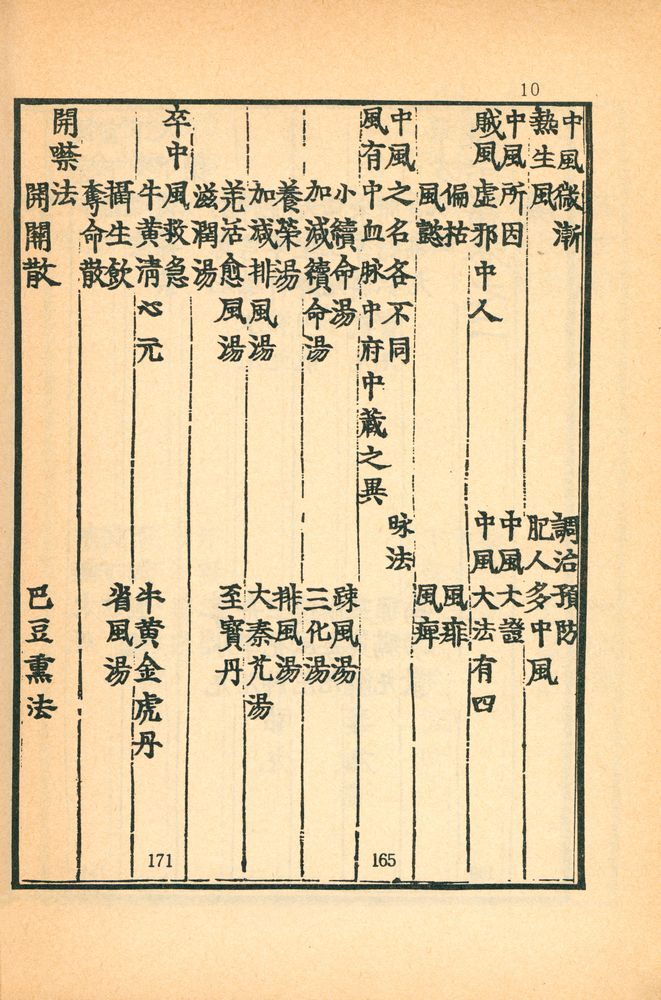 10
中風微漸　調治預防
熱生風　肥人多中風
中風所因　中風大證
賊風虛邪中人　中風大法有四
偏枯　風痱
風懿　風痺
中風之名各不同　脉法　165
風有中血脉中府中藏之異
小續命湯　疎風湯
加減續命湯　三化湯
養榮湯　排風湯
加減排風湯　大秦艽湯
羌活愈風湯　至寶丹
滋潤湯
卒中風救急　171
牛黃清心元　牛黃金虎丹
攝生飲　省風湯
奪命散
開噤法
開關散　巴豆熏法